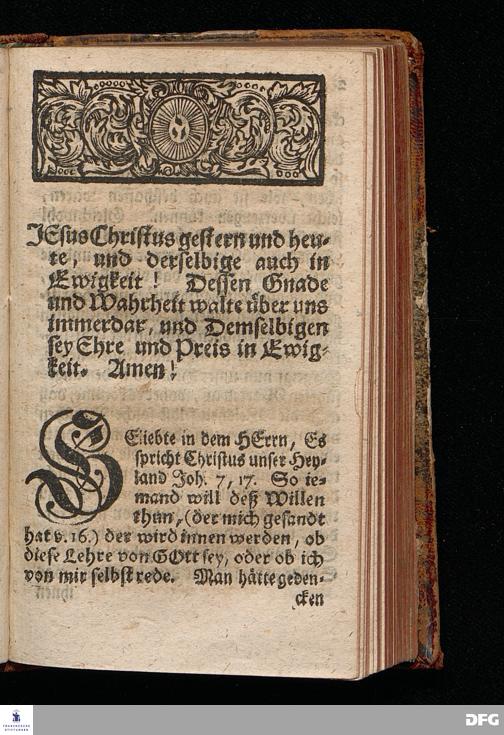 JEsus Christus gestern und heu-
te, und derselbige auch in
Ewigkeit! Dessen Gnade
und Wahrheit walte über uns
immerdar, und Demselbigen
sey Ehre und Preis in Ewig-
keit. Amen!
GEliebte in dem HErrn, Es
spricht Christus unser Hey-
land Joh. 7, 17. So ie-
mand will deß Willen
thun, (der mich gesandt
hat v. 16.) der wird innen werden, ob
diese Lehre von GOtt sey, oder ob ich
von mir selbst rede. Man hätte geden-
cken
FRANCKESCHE
STIFTUNGEN
DFG